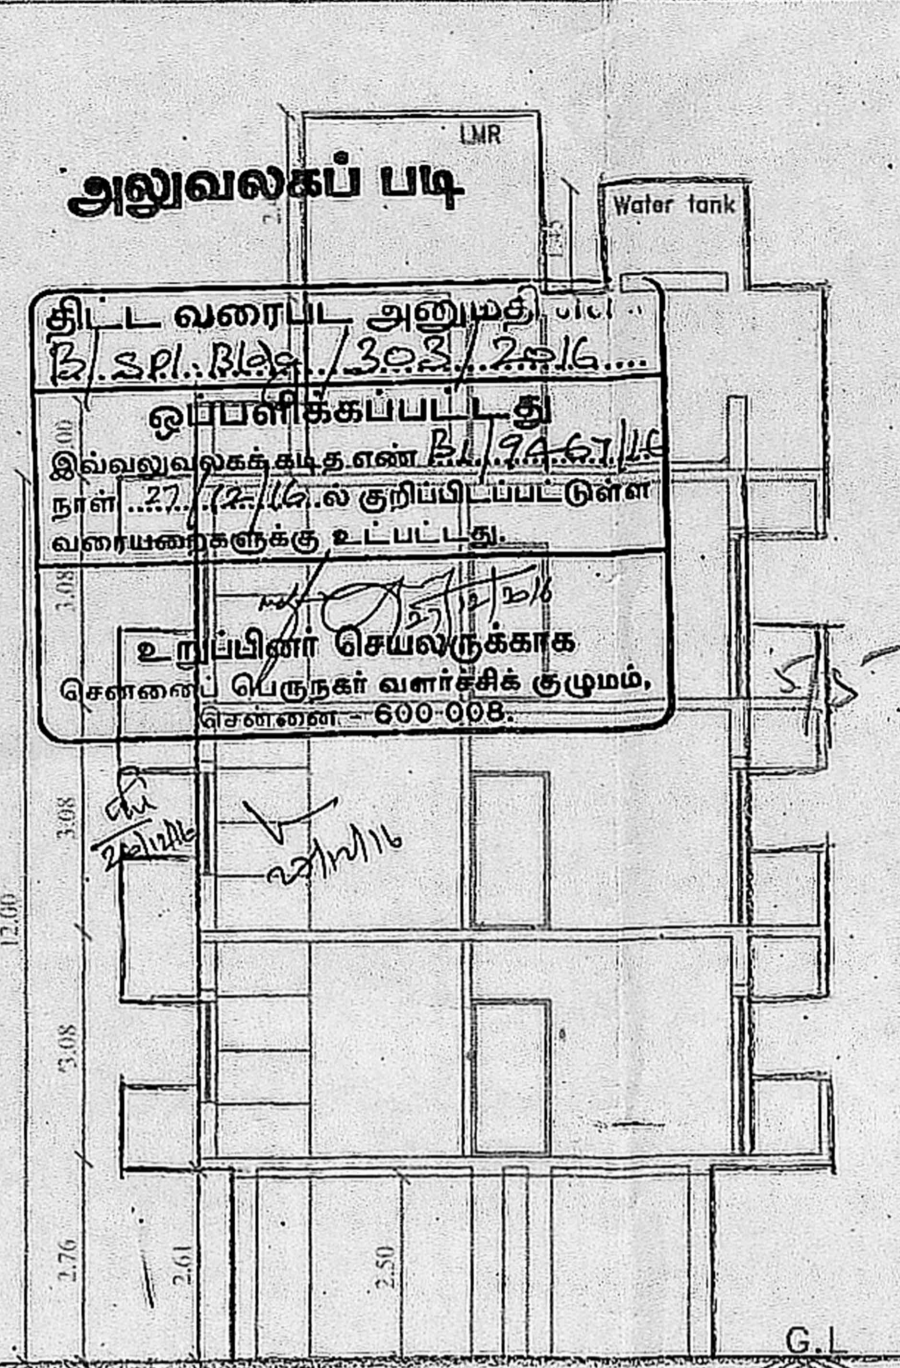 LMR
அலுவலகப் படி
Water tank
திட்ட வரைபட அனுமதி
B / Spl. Bldg / 303 / 2016
ஒப்பளிக்கப்பட்டது
இவ்வலுவலகக் கடித எண் B1/9467/16
நாள் 27/12/16 ல் குறிப்பிடப்பட்டுள்ள
வரையறைகளுக்கு உட்பட்டது.
3.08
27/12/2016
உறுப்பினர் செயலருக்காக
சென்னைப் பெருநகர் வளர்ச்சிக் குழுமம்,
சென்னை - 600 008.
3.08
12.00
3.08
2.76
2.61
2.50
G.L